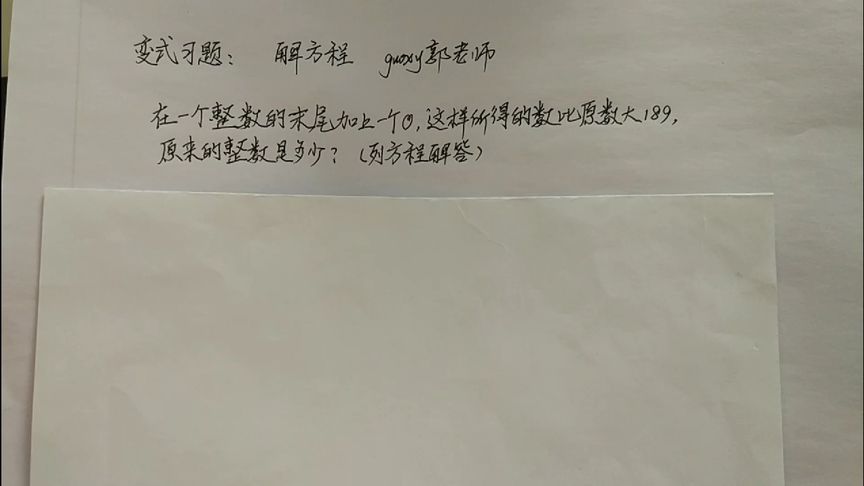 变式习题： 解方程 guoxy郭老师
在一个整数的末尾加上一个0,这样所得的数比原数大189,
原来的整数是多少？（列方程解答）